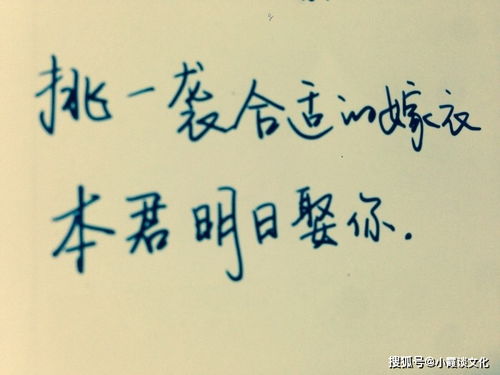 挑一袭合适的嫁衣
本君明日娶你.
搜狐号@小霞谈文化